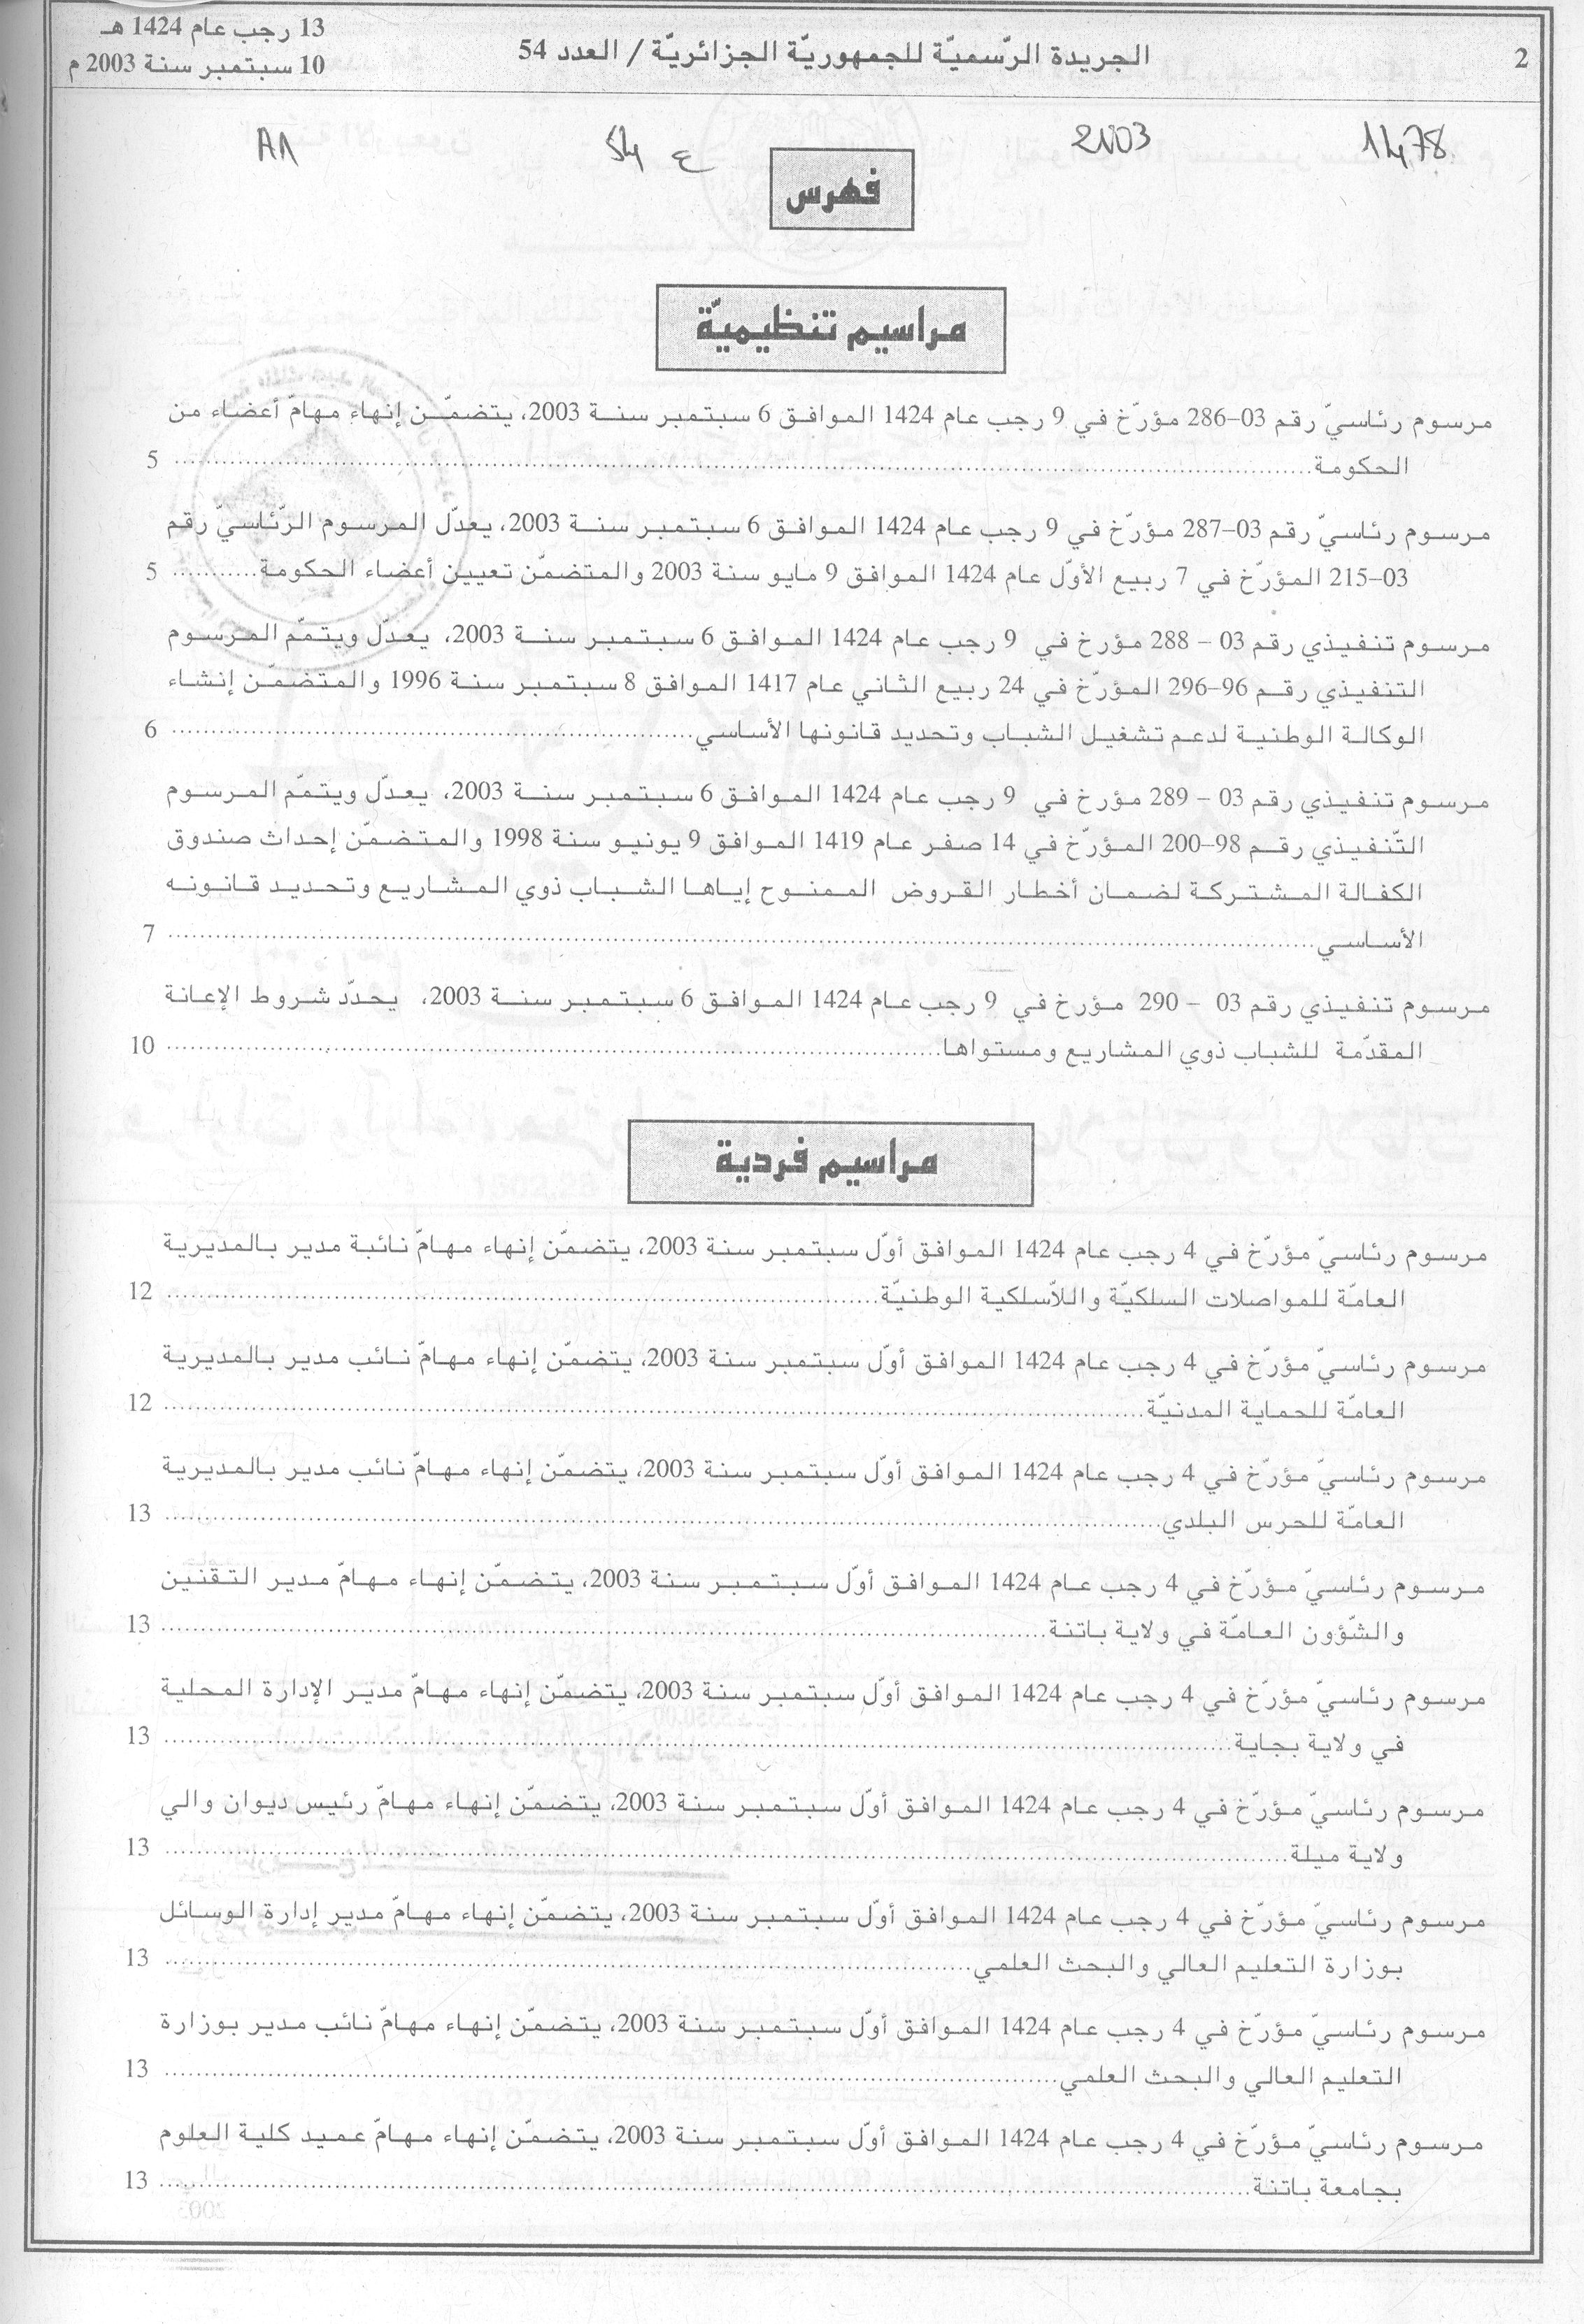 2
الجريدة الرّسميّة للجمهوريّة الجزائريّة / العدد 54
13 رجب عام 1424 هـ
10 سبتمبر سنة 2003 م
1478
2003
54 ع
فهرس
مراسيم تنظيميّة
مرسوم رئاسيّ رقم 03–286 مؤرّخ في 9 رجب عام 1424 الموافق 6 سبتمبر سنة 2003، يتضمّن إنهاء مهامّ أعضاء من
الحكومة.................... 5
مرسوم رئاسيّ رقم 03–287 مؤرّخ في 9 رجب عام 1424 الموافق 6 سبتمبر سنة 2003، يعدّل المرسوم الرّئاسيّ رقم
03–215 المؤرّخ في 7 ربيع الأوّل عام 1424 الموافق 9 مايو سنة 2003 والمتضمّن تعيين أعضاء الحكومة............ 5
مرسوم تنفيذي رقم 03 – 288 مؤرخ في 9 رجب عام 1424 الموافق 6 سبتمبر سنة 2003، يعدّل ويتمّم المرسوم
التنفيذي رقم 96–296 المؤرّخ في 24 ربيع الثاني عام 1417 الموافق 8 سبتمبر سنة 1996 والمتضمّن إنشاء
الوكالة الوطنية لدعم تشغيل الشباب وتحديد قانونها الأساسي.................... 6
مرسوم تنفيذي رقم 03 – 289 مؤرخ في 9 رجب عام 1424 الموافق 6 سبتمبر سنة 2003، يعدّل ويتمّم المرسوم
التّنفيذي رقم 98–200 المؤرّخ في 14 صفر عام 1419 الموافق 9 يونيو سنة 1998 والمتضمّن إحداث صندوق
الكفالة المشتركة لضمان أخطار القروض الممنوح إياها الشباب ذوي المشاريع وتحديد قانونه
الأساسي.................... 7
مرسوم تنفيذي رقم 03 – 290 مؤرخ في 9 رجب عام 1424 الموافق 6 سبتمبر سنة 2003، يحدّد شروط الإعانة
المقدّمة للشباب ذوي المشاريع ومستواها.................... 10
مراسيم فردية
مرسوم رئاسيّ مؤرّخ في 4 رجب عام 1424 الموافق أوّل سبتمبر سنة 2003، يتضمّن إنهاء مهامّ نائبة مدير بالمديرية
العامّة للمواصلات السلكيّة واللاّسلكية الوطنيّة.................... 12
مرسوم رئاسيّ مؤرّخ في 4 رجب عام 1424 الموافق أوّل سبتمبر سنة 2003، يتضمّن إنهاء مهامّ نائب مدير بالمديرية
العامّة للحماية المدنيّة.................... 12
مرسوم رئاسيّ مؤرّخ في 4 رجب عام 1424 الموافق أوّل سبتمبر سنة 2003، يتضمّن إنهاء مهامّ نائب مدير بالمديرية
العامّة للحرس البلدي.................... 13
مرسوم رئاسيّ مؤرّخ في 4 رجب عام 1424 الموافق أوّل سبتمبر سنة 2003، يتضمّن إنهاء مهامّ مدير التقنين
والشّؤون العامّة في ولاية باتنة.................... 13
مرسوم رئاسيّ مؤرّخ في 4 رجب عام 1424 الموافق أوّل سبتمبر سنة 2003، يتضمّن إنهاء مهامّ مدير الإدارة المحلية
في ولاية بجاية.................... 13
مرسوم رئاسيّ مؤرّخ في 4 رجب عام 1424 الموافق أوّل سبتمبر سنة 2003، يتضمّن إنهاء مهامّ رئيس ديوان والي
ولاية ميلة.................... 13
مرسوم رئاسيّ مؤرّخ في 4 رجب عام 1424 الموافق أوّل سبتمبر سنة 2003، يتضمّن إنهاء مهامّ مدير إدارة الوسائل
بوزارة التعليم العالي والبحث العلمي.................... 13
مرسوم رئاسيّ مؤرّخ في 4 رجب عام 1424 الموافق أوّل سبتمبر سنة 2003، يتضمّن إنهاء مهامّ نائب مدير بوزارة
التعليم العالي والبحث العلمي.................... 13
مرسوم رئاسيّ مؤرّخ في 4 رجب عام 1424 الموافق أوّل سبتمبر سنة 2003، يتضمّن إنهاء مهامّ عميد كلية العلوم
بجامعة باتنة.................... 13